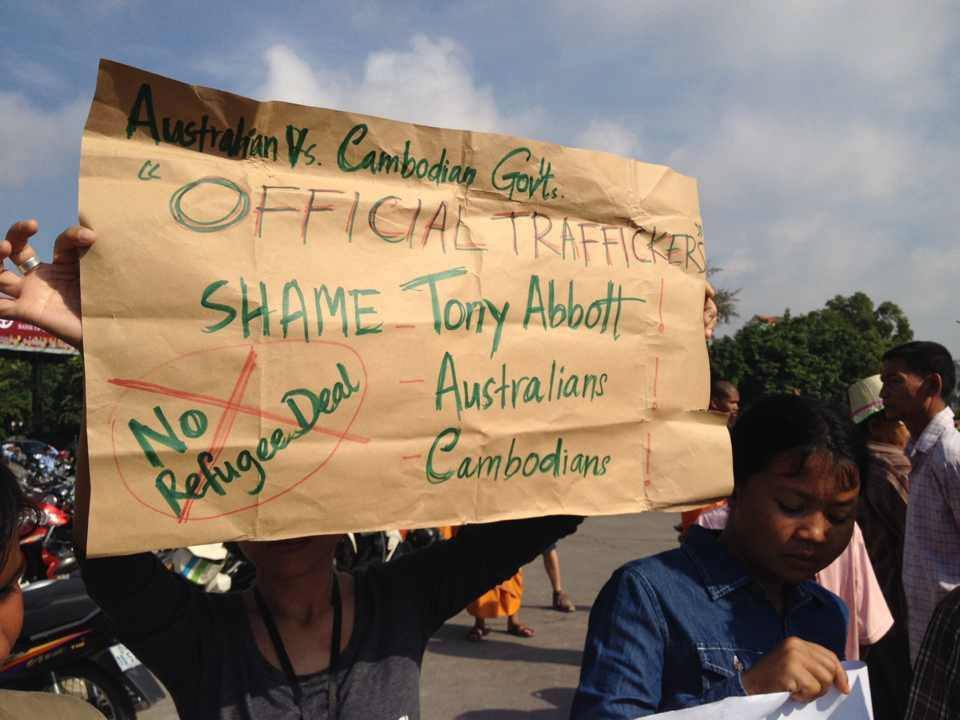 Australian Vs. Cambodian Gov'ts.
"OFFICIAL TRAFFICKERS"
SHAME - Tony Abbott !
- Australians !
- Cambodians !
No
Refugee Deal